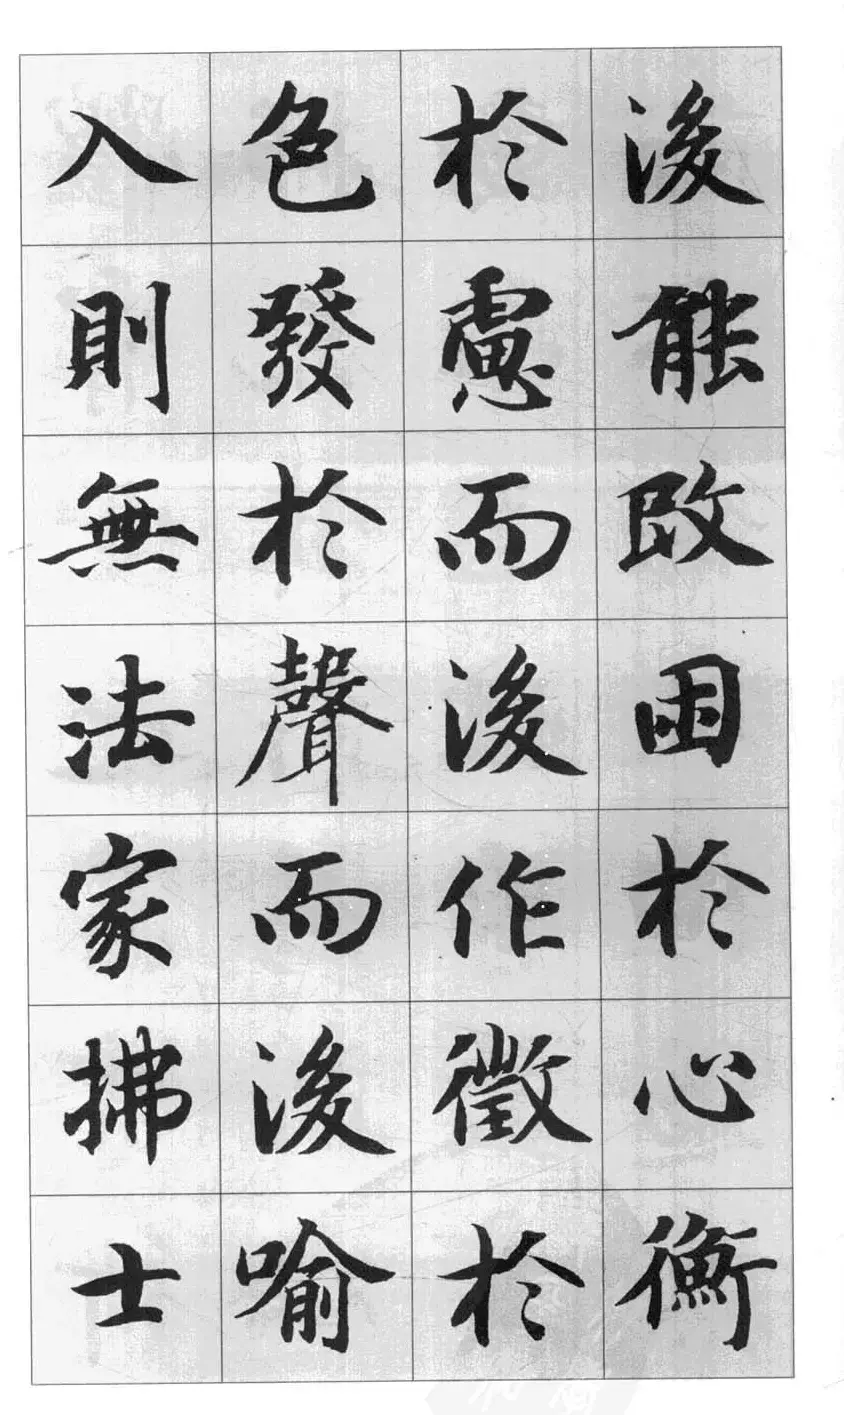 後能改困於心衡
於慮而後作徵於
色發於聲而後喻
入則無法家拂士